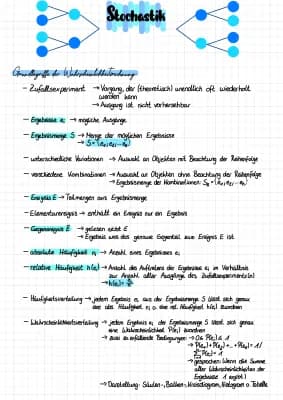 Stochastik
Grundbegriffe der Wahrscheinlichkeitsrechnung
- Zufallsexperiment → Vorgang, der (theoretisch) unendlich oft wiederholt
werden kann
→ Ausgang ist nicht vorhersehbar
- Ergebnisse eᵢ → mögliche Ausgänge
- Ergebnismenge S → Menge der möglichen Ergebnisse
→ S = {e₁, e₂, ... eₙ}
- unterschiedliche Variationen → Auswahl an Objekten mit Beachtung der Reihenfolge
- verschiedene Kombinationen → Auswahl an Objekten ohne Beachtung der Reihenfolge
→ Ergebnismenge der Kombinationen: = {e₁, e₂, ... eₙ}
- Ereignis E → Teilmengen aus Ergebnismenge
- Elementarereignis → enthält ein Ereignis nur ein Ergebnis
- Gegenereignis E̅ → gelesen nicht E
→ Ergebnis was das genaue Gegenteil zum Ereignis E ist
- absolute Häufigkeit → Anzahl eines Ergebnisses eᵢ
- relative Häufigkeit h(eᵢ) → Anzahl des Auftretens der Ergebnisse eᵢ im Verhältnis
zur Anzahl aller Ausgänge des Zufallsexperiments (n)
→ h(eᵢ) =
- Häufigkeitsverteilung → jedem Ergebnis eᵢ aus der Ergebnismenge S lässt sich genau
eine abs. Häufigkeit o. eine rel. Häufigkeit h(eᵢ) zuordnen
- Wahrscheinlichkeitsverteilung → jedem Ergebnis eᵢ der Ergebnismenge S lässt sich genau
eine Wahrscheinlichkeit P(eᵢ) zuordnen
→ zwei zu erfüllende Bedingungen: → 0 ≤ P(eᵢ) ≤ 1
→ P(e₁) + P(e₂) + ... + P(eₙ) = 1 /
∑ P(eᵢ) = 1
→ gesprochen: Wenn die Summe
aller Wahrscheinlichkeiten der
Ergebnisse 1 ergibt
→ Darstellung: Säulen-, Balken-, Kreisdiagramm, Histogramm o. Tabelle